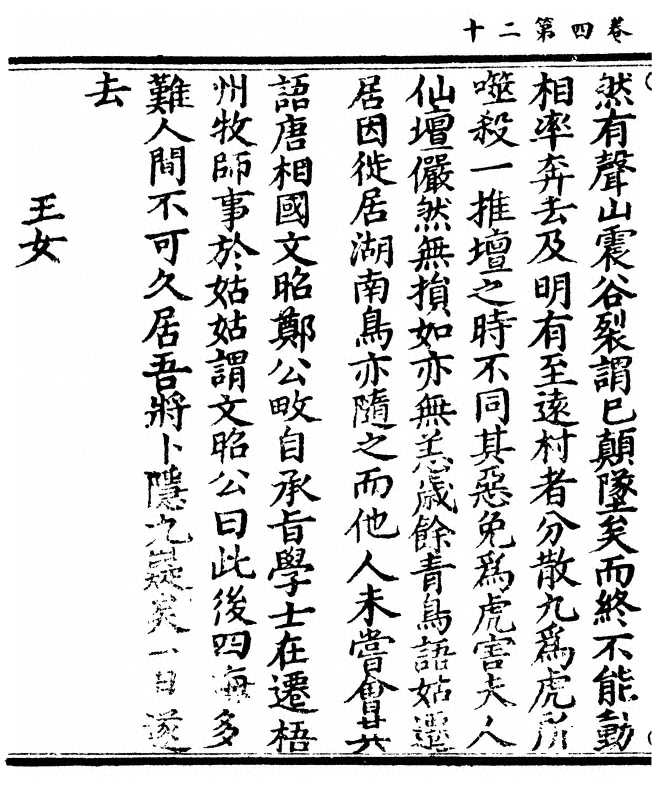 卷四第二十
然有聲山震谷裂謂已顛墜矣而終不能動
相率奔去及明有至遠村者分散九爲虎所
噬殺一推壇之時不同其惡免爲虎害夫人
仙壇儼然無損如亦無恙歲餘青鳥語姑遷
居因徙居湖南鳥亦隨之而他人未嘗會
語唐相國文昭鄭公畋自承旨學士在遷梧
州牧師事於姑姑謂文昭公曰此後四海多
難人間不可久居吾將卜隱九嶷矣一日遂
去
王女